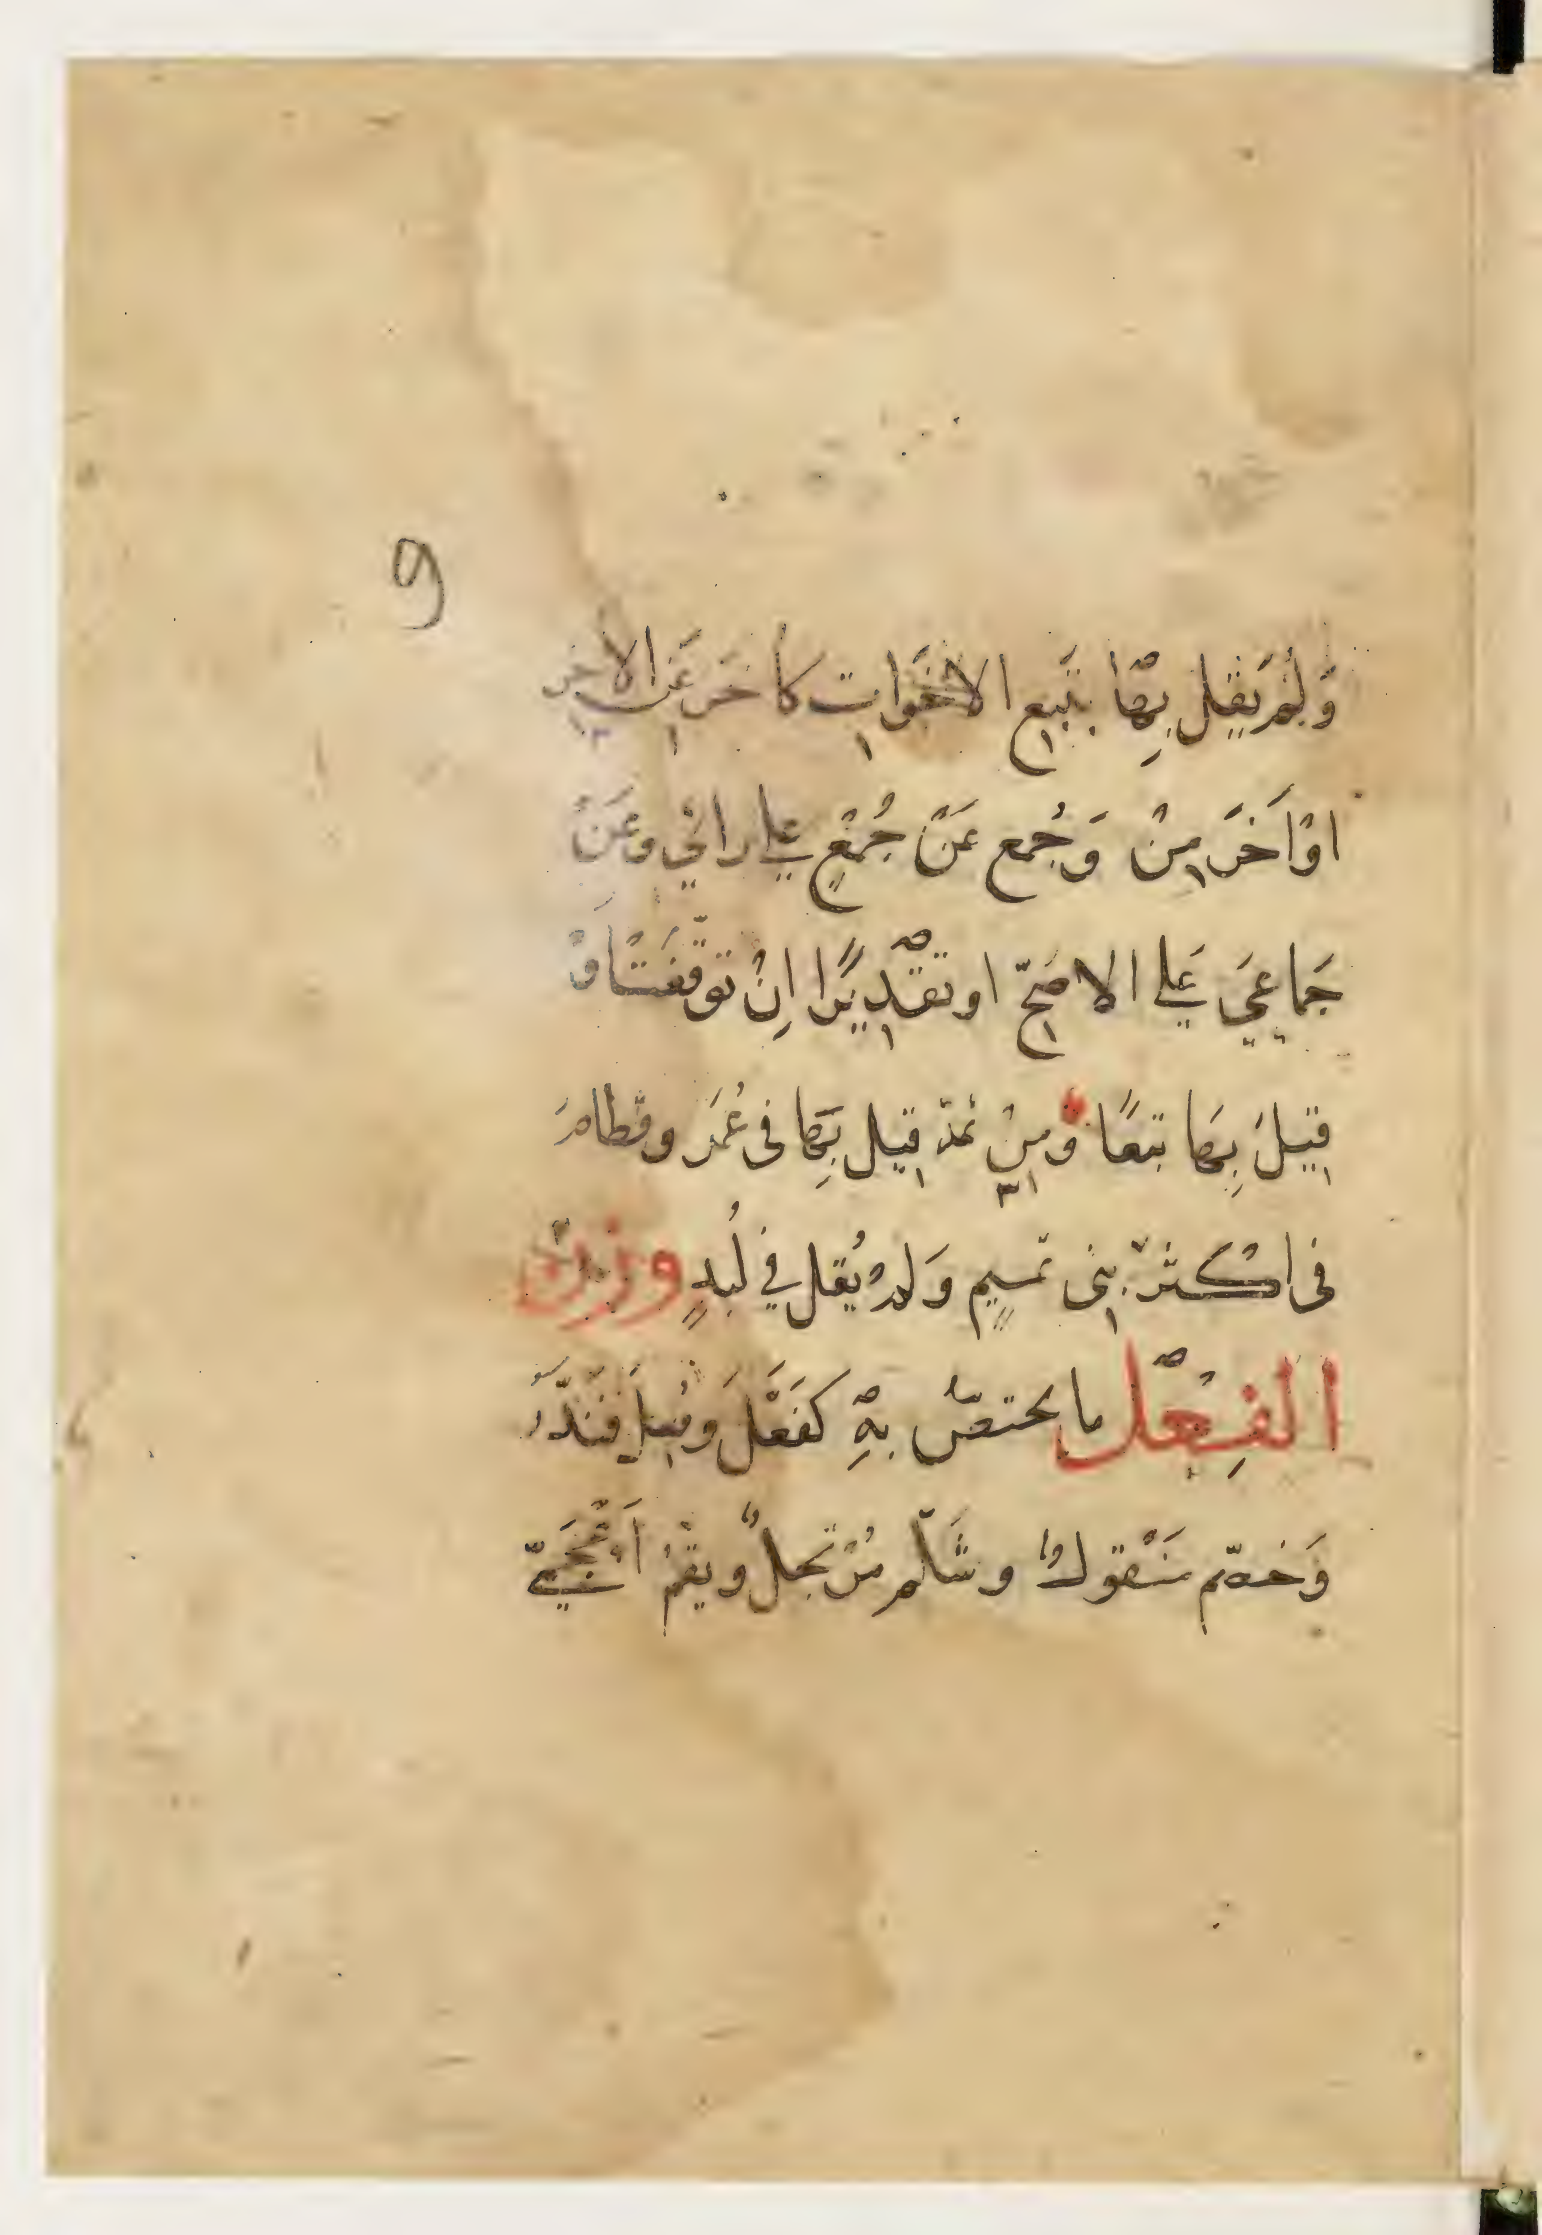 9
وَلَمْ يَقُلْ بِهَا بتتبع الاخَوات كاُخَر عَن الاخر
اوْ اَخَرَ مِنْ وَجُمع عَنْ جُمْعٍ علي رائي وعَنْ
جَماعَي عَلي الاصَحّ او تقْدِيرًا اِنْ توقّفَتَا وَ
قِيْلَ بِهَا تبَعًا وَمِنْ ثمّة قِيل بِهَا فى عُمَر وقطامَ
فى اكْثر بنى تمَيمٍ وَلمْ يُقل فِي لُبدٍ وزن
الفِعْل ما يختصّ بهِ كفَعَّلَ وفُعِلَ فبَذَّر
وَخضّم مَنْقولٌ وشَلّم مُرْتجلٌ وبقّم اَعْجَمِيّ